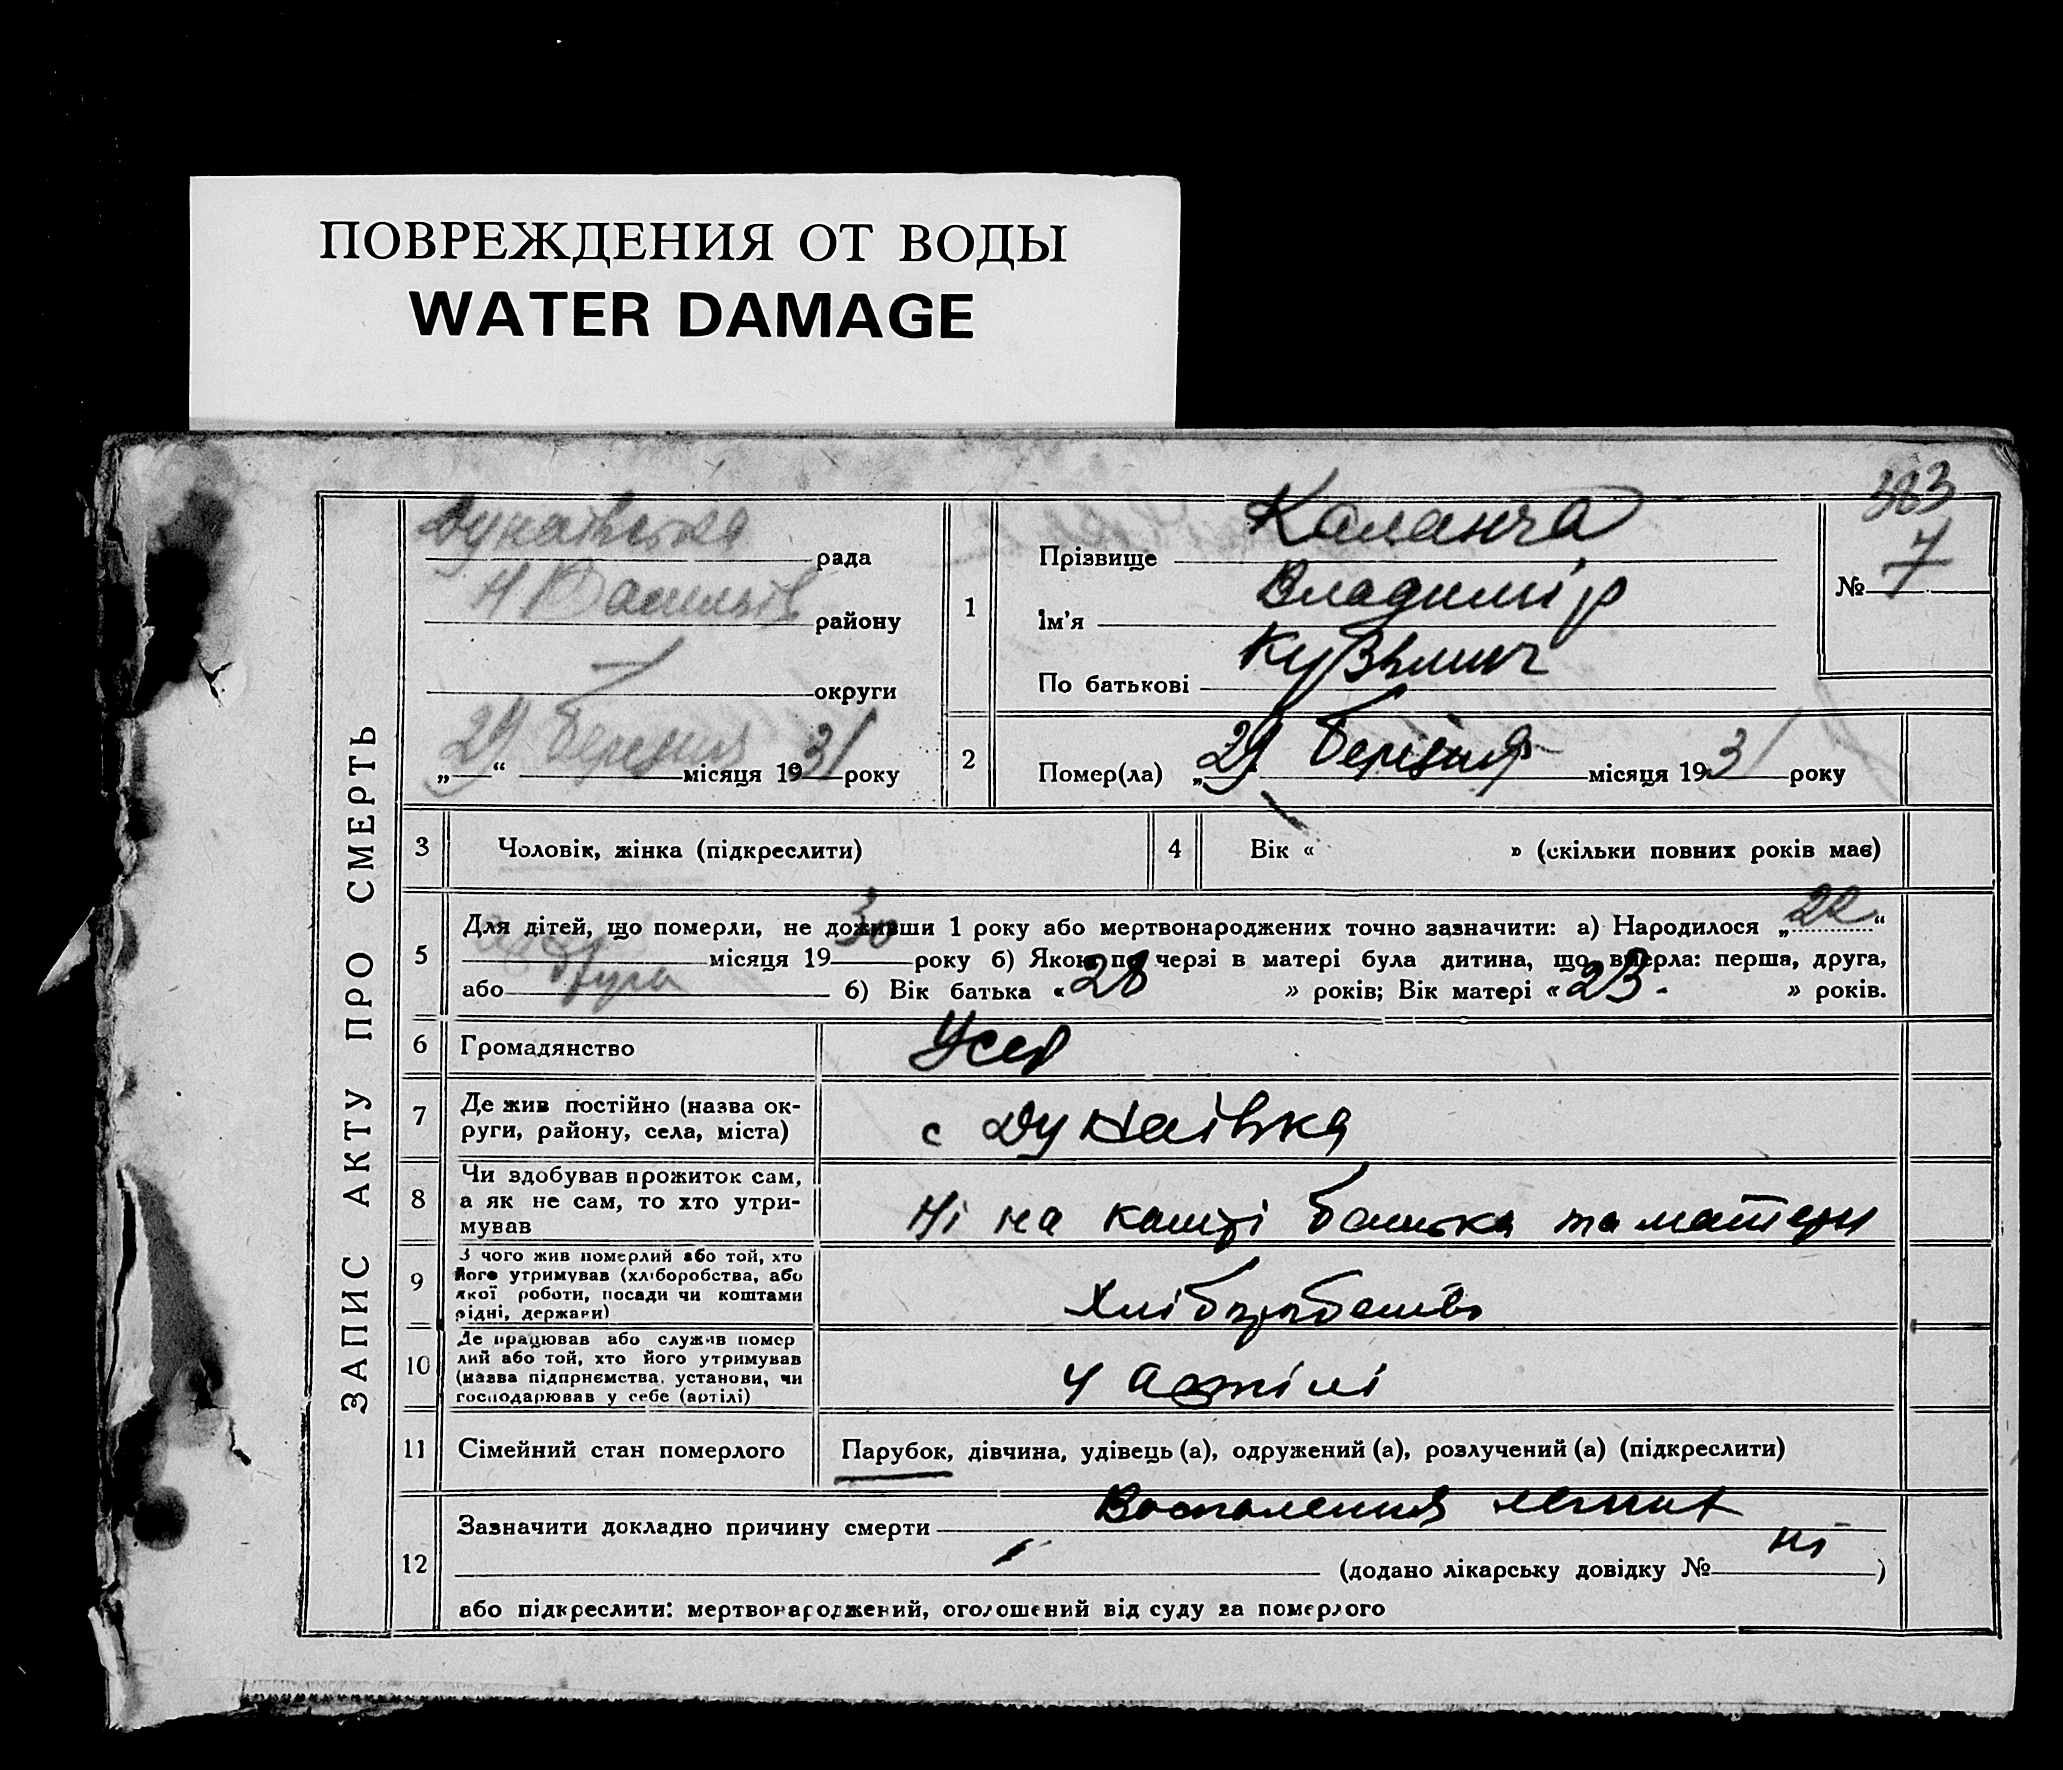 ПОВРЕЖДЕНИЯ ОТ ВОДЫ
WATER DAMAGE
383
ЗАПИС АКТУ ПРО СМЕРТЬ
Дунаївська рада
Н Васильїв району
— округи
„29“ березня місяця 1931 року
1
Прізвище Каланча
Ім'я Владимір
По батькові Кузьмич
№ 7
2
Помер(ла) „29 березня місяця 1931 року
3 Чоловік, жінка (підкреслити)
4 Вік « » (скільки повних років має)
5 Для дітей, що померли, не доживши 1 року або мертвонароджених точно зазначити: а) Народилося „22“
місяця 1930 року б) Якою по черзі в матері була дитина, що вмерла: перша, друга,
або друга б) Вік батька «28 » років; Вік матері «23. » років.
6 Громадянство Усср
7 Де жив постійно (назва ок-
руги, району, села, міста)
с Дунаївка
8 Чи здобував прожиток сам,
а як не сам, то хто утри-
мував
Ні на кошті батька та матери
9 З чого жив померлий або той, хто
його утримував (хліборобства, або
якої роботи, посади чи коштами
рідні, держави)
Хліборобство
10 Де працював або служив помер
лий або той, хто його утримував
(назва підприємства, установи, чи
господарював у себе (артілі)
У артілі
11 Сімейний стан померлого Парубок, дівчина, удівець (а), одружений (а), розлучений (а) (підкреслити)
12 Зазначити докладно причину смерти Воспаления легких
(додано лікарську довідку № ні )
або підкреслити: мертвонароджений, оголошений від суду за померлого